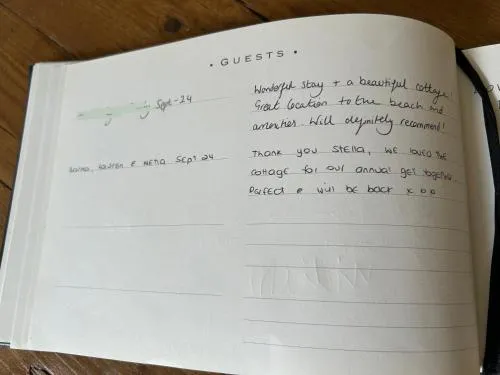 • GUESTS •
Sept-24
Wonderful stay + a beautiful cottage!
Great location to the beach and
amenities. Will definitely recommend!
Lauren & Sept 24
Thank you Stella, we loved the
cottage for our annual get together
Perfect & will be back x o o